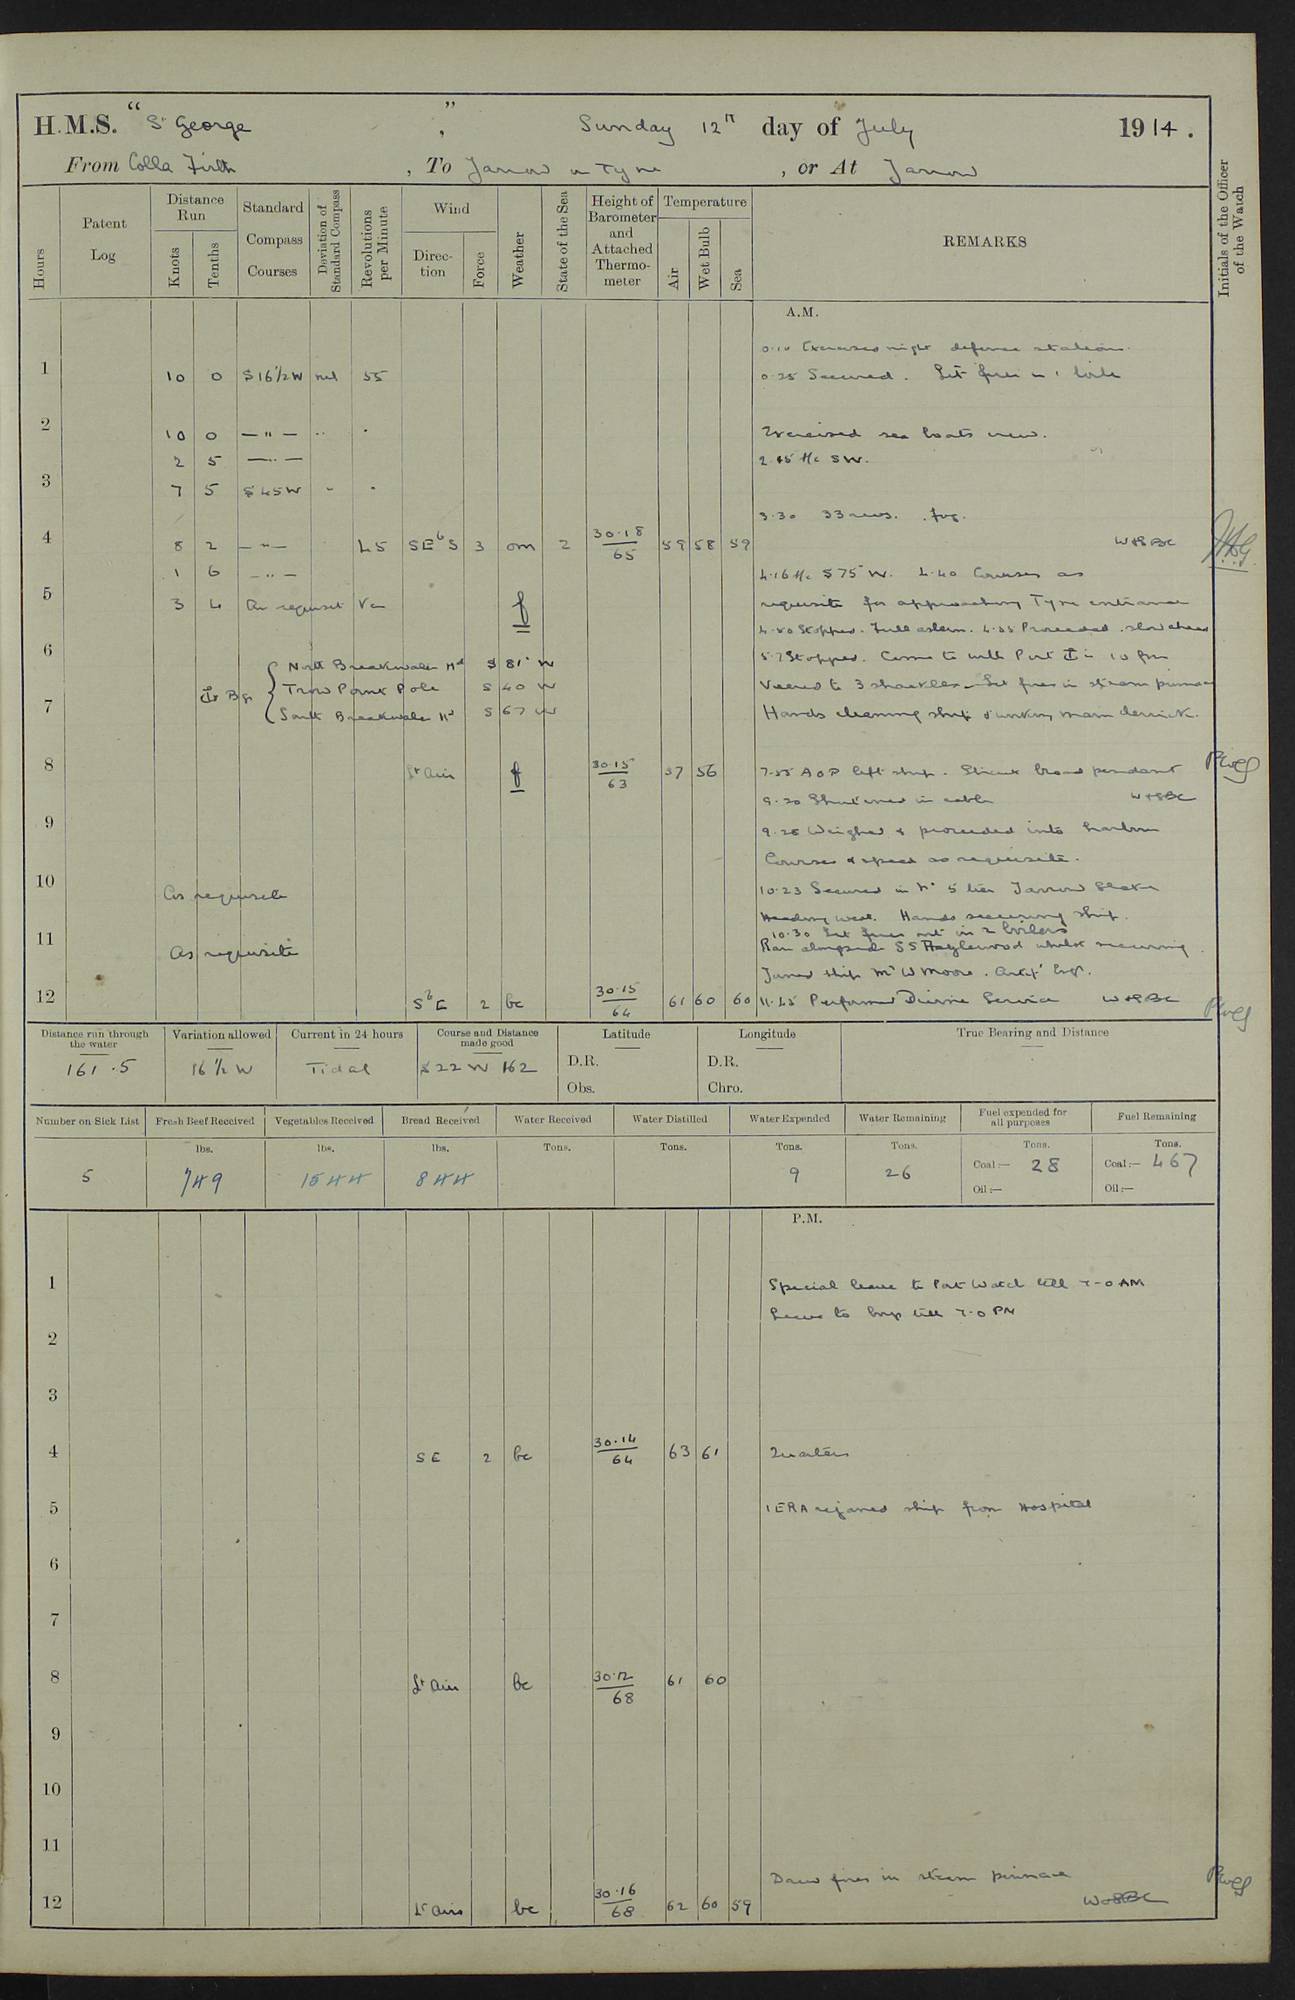 H.M.S. "St George", Sunday 12th day of July 1914.
From Colla Firth, To Jarrow on Tyne, or At Jarrow
Hours
Patent Log
Distance Run
Knots
Tenths
Standard Compass Courses
Deviation of Standard Compass
Revolutions per Minute
Wind
Direction
Force
Weather
State of the Sea
Height of Barometer and Attached Thermometer
Temperature
Air
Wet Bulb
Sea
REMARKS
Initials of the Officer of the Watch
A.M.
0.10 Exercised night defence stations.
1 10 0 S 16½ W nil 55 0.25 Secured. Lit fires in 1 boiler
2 10 0 — " — Exercised sea boats crew.
2 5 — " — 2.45 A/c SW.
3 7 5 S 45 W
3.30 33 revs. fog.
4 8 2 — " — 45 SE b S 3 om 2 30.18 / 65 59 58 59 W H S B C
1 6 — " — 4.16 A/c S 75 W. 4.40 Courses as
5 3 4 As requisite Var f requisite for approaching Tyne entrance
4.50 Stopped. Full astern. 4.55 Proceeded. slow ahead
6 North Breakwater Hd S 81° W 5.7 Stopped. Came to with Port ⚓ in 10 fms
⚓ Bgs Trow Point Pole S 40 W Veered to 3 shackles. Lit fires in steam pinnace
7 South Breakwater Hd S 67 W Hands cleaning ship & working main derrick.
8 Lt Airs f 30.15 / 63 57 56 7.55 A O P left ship. Struck broad pendant
9.20 Shortened in cable
9 9.25 Weighed & proceeded into harbour
Courses & speed as requisite.
10 As requisite 10.23 Secured in No 5 tier Jarrow Slake
Heading West. Hands securing ship.
10.30 Let fires out in 2 boilers
11 As requisite Ran alongside SS Haglewood whilst securing.
Joined ship Mr W Moore. Artif Engr.
12 S b E 2 bc 30.15 / 64 61 60 60 11.45 Performed Divine Service
Distance run through the water
161.5
Variation allowed
16½ W
Current in 24 hours
Tidal
Course and Distance made good
S 22 W 162
Latitude
D.R.
Obs.
Longitude
D.R.
Chro.
True Bearing and Distance
Number on Sick List
5
Fresh Beef Received
lbs.
749
Vegetables Received
lbs.
1544
Bread Received
lbs.
844
Water Received
Tons.
Water Distilled
Tons.
Water Expended
Tons.
9
Water Remaining
Tons.
26
Fuel expended for all purposes
Tons.
Coal:— 28
Oil:—
Fuel Remaining
Tons.
Coal:— 467
Oil:—
P.M.
1 Special leave to Port Watch till 7-0 AM
Leave to boys till 7-0 PM
2
3
4 SE 2 bc 30.14 / 64 63 61 Quarters
5 1 ERA rejoined ship from Hospital
6
7
8 Lt Airs bc 30.12 / 68 61 60
9
10
11
Drew fires in steam pinnace
12 Lt Airs bc 30.16 / 68 62 60 59